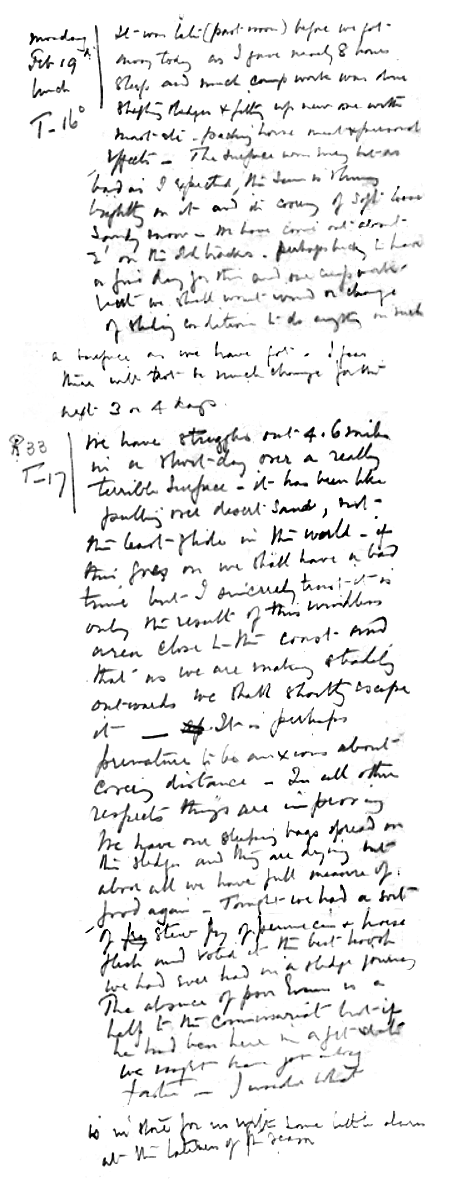 Monday
Feb 19th
lunch
T -16°
It was late (past noon) before we got
away today as I gave nearly 8 hours
sleep and much camp work was done
shifting sledges & fitting up new one with
mast &c - packing horse meat & personal
effects - The surface was every bit as
bad as I expected, the sun is shining
brightly on it and its covey of soft loose
sandy snow - We have come out about
2' on the old tracks. Perhaps lucky to have
a fine day for this and our camp work
but we shall want wind or change
of sliding conditions to do anything on such
a surface as we have got - I fear
there will not be much change for the
next 3 or 4 days.
R 33
T -17
We have struggled out 4.6 miles
in a short day over a really
terrible surface - it has been like
pulling over desert sand, not
the least glide in the world - if
this goes on we shall have a bad
time but I sincerely trust it is
only the result of this windless
area close to the coast and
that as we are making steadily
outwards we shall shortly escape
it — It is perhaps
premature to be anxious about
covering distance - In all other
respects things are improving
We have our sleeping bags spread on
the sledge and they are drying but
above all we have full measure of
food again - Tonight we had a sort
of stew fry of pemmican & horse
flesh and voted it the best hoosh
we had ever had on a sledge journey
The absence of poor Evans is a
help to the commissariat but if
he had been here in a fit state
we might have got along
faster - I wonder what
is in store for us with some little alarm
at the lateness of the season